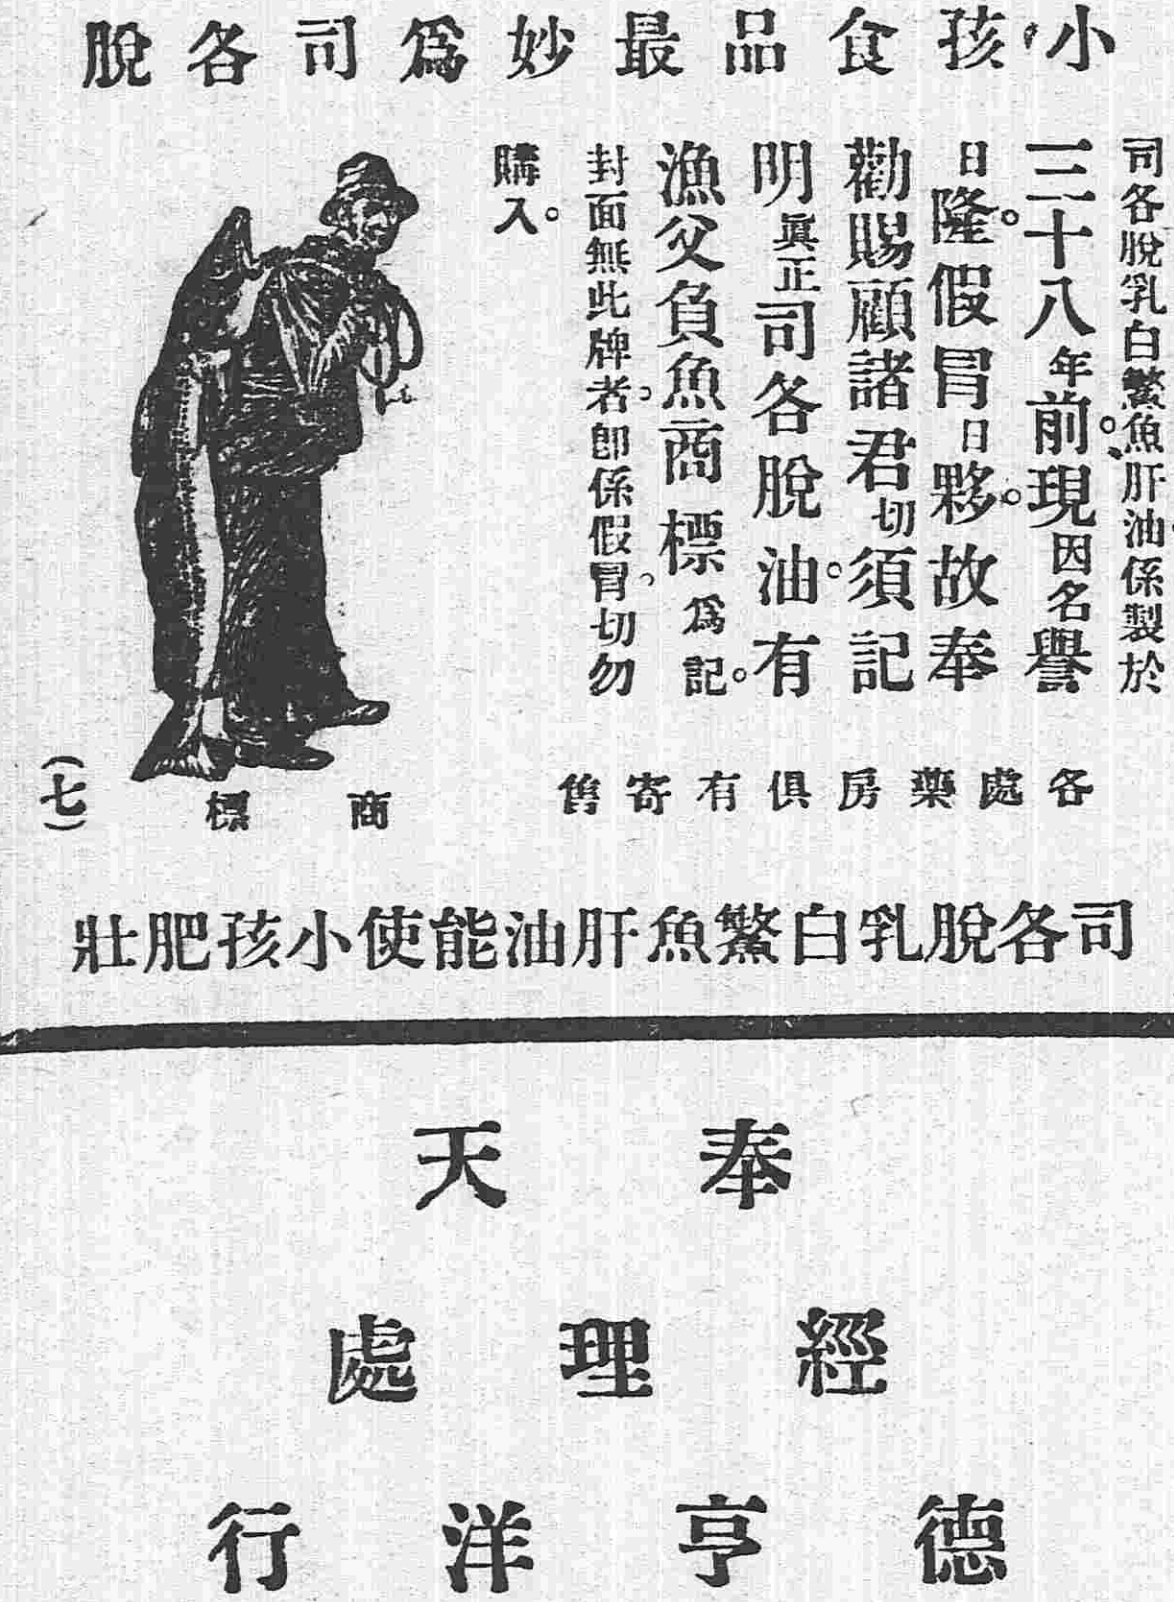 小孩食品最妙爲司各脫
司各脫乳白鰵魚肝油係製於
三十八年前。現因名譽
日隆。假冒日夥。故奉
勸賜顧諸君切須記
明眞正司各脫油。有
漁父負魚商標爲記。
封面無此牌者。卽係假冒。切勿
購入。
各處藥房俱有寄售
商標
(七)
司各脫乳白鰵魚肝油能使小孩肥壯
奉天
經理處
德亨洋行